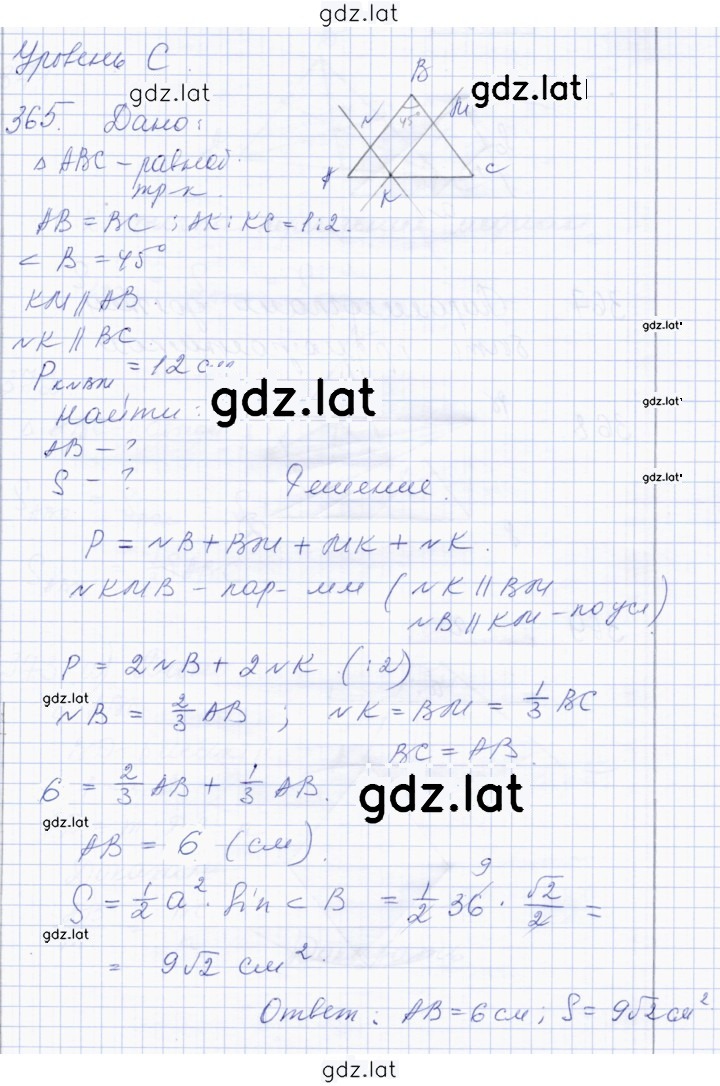 gdz.lat
Уровень С.
gdz.lat
gdz.lat
365. Дано:
B
N 45° M
A K C
Δ ABC – равноб.
тр-к.
AB = BC ; AK : KC = 1:2.
< B = 45°
KM || AB.
NK || BC
gdz.lat
P KNBM = 12 см
gdz.lat
gdz.lat
Найти:
AB – ?
S – ?
Решение.
gdz.lat
P = NB + BM + MK + NK.
NKMB – пар-мм ( NK || BM
NB || KM – по усл)
P = 2NB + 2NK (:2)
gdz.lat
NB = 2/3 AB ; NK = BM = 1/3 BC
BC = AB.
6 = 2/3 AB + 1/3 AB.
gdz.lat
gdz.lat
AB = 6 (см).
S = 1/2 a² · Sin < B = 1/2 36 9 · √2/2 =
gdz.lat
= 9√2 см².
Ответ: AB = 6 см; S = 9√2 см²
gdz.lat